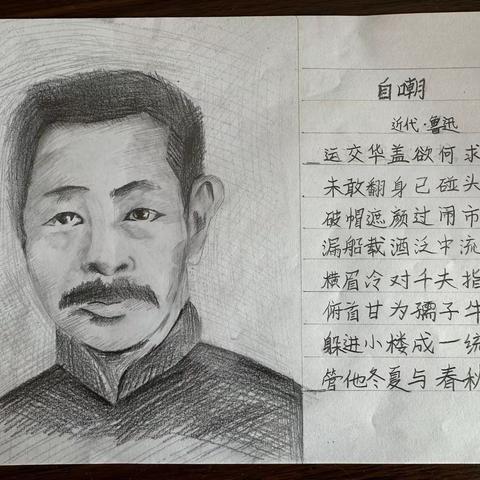 自嘲
近代·鲁迅
运交华盖欲何求
未敢翻身已碰头
破帽遮颜过闹市
漏船载酒泛中流
横眉冷对千夫指
俯首甘为孺子牛
躲进小楼成一统
管他冬夏与春秋